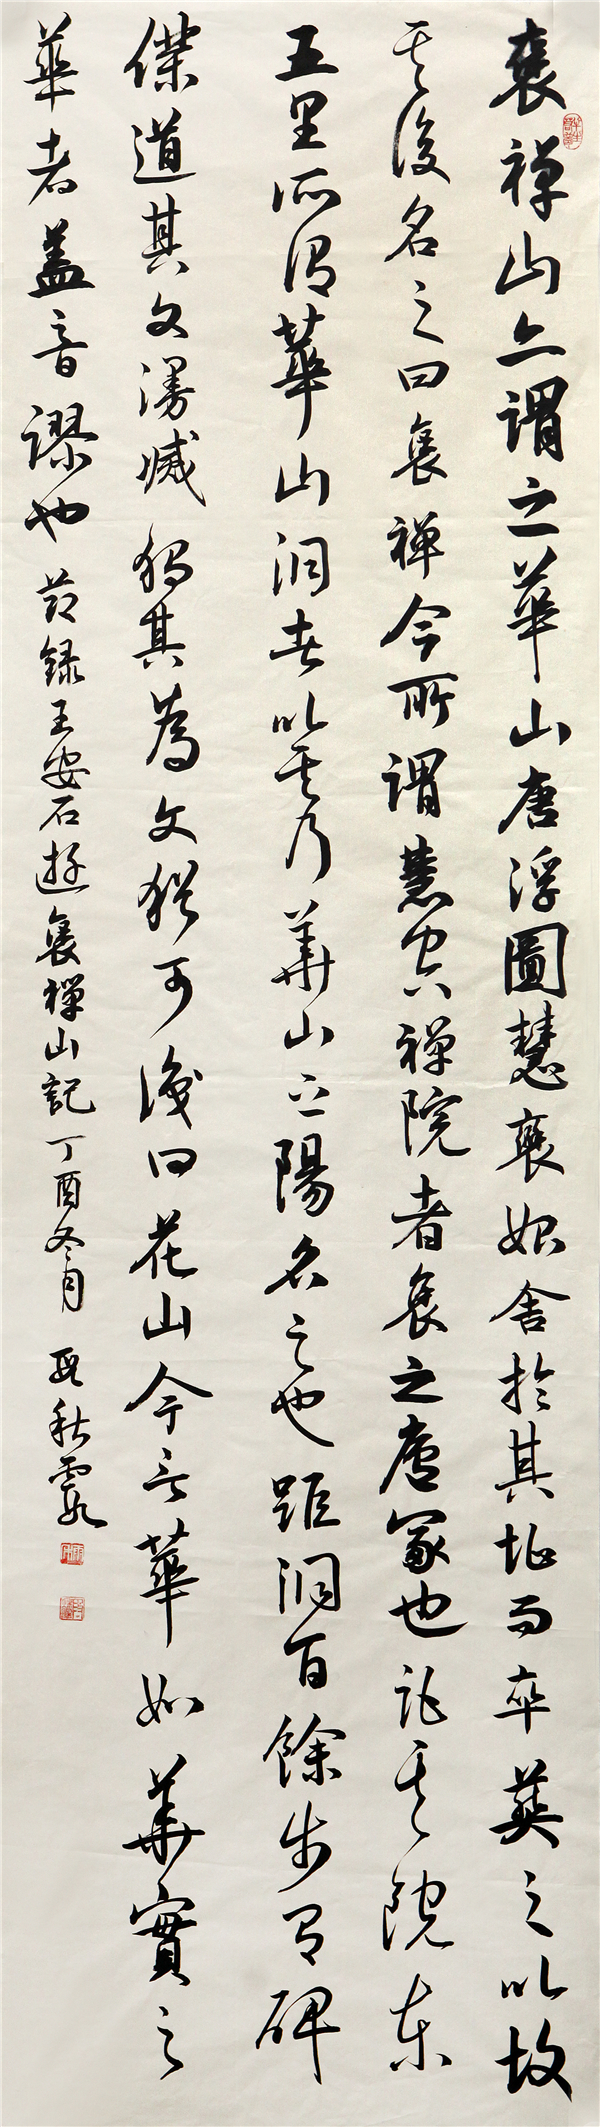 褒禅山亦謂之華山唐浮圖慧褒始舍於其址而卒葬之以故
其後名之曰褒禅今所謂慧空禅院者褒之廬冢也距其院東
五里所謂華山洞者以其乃華山之陽名之也距洞百餘步有碑
僕道其文漫滅獨其為文猶可識曰花山今言華如華實之
華者盖音謬也 节録王安石遊褒禅山記丁酉冬月 秋霞